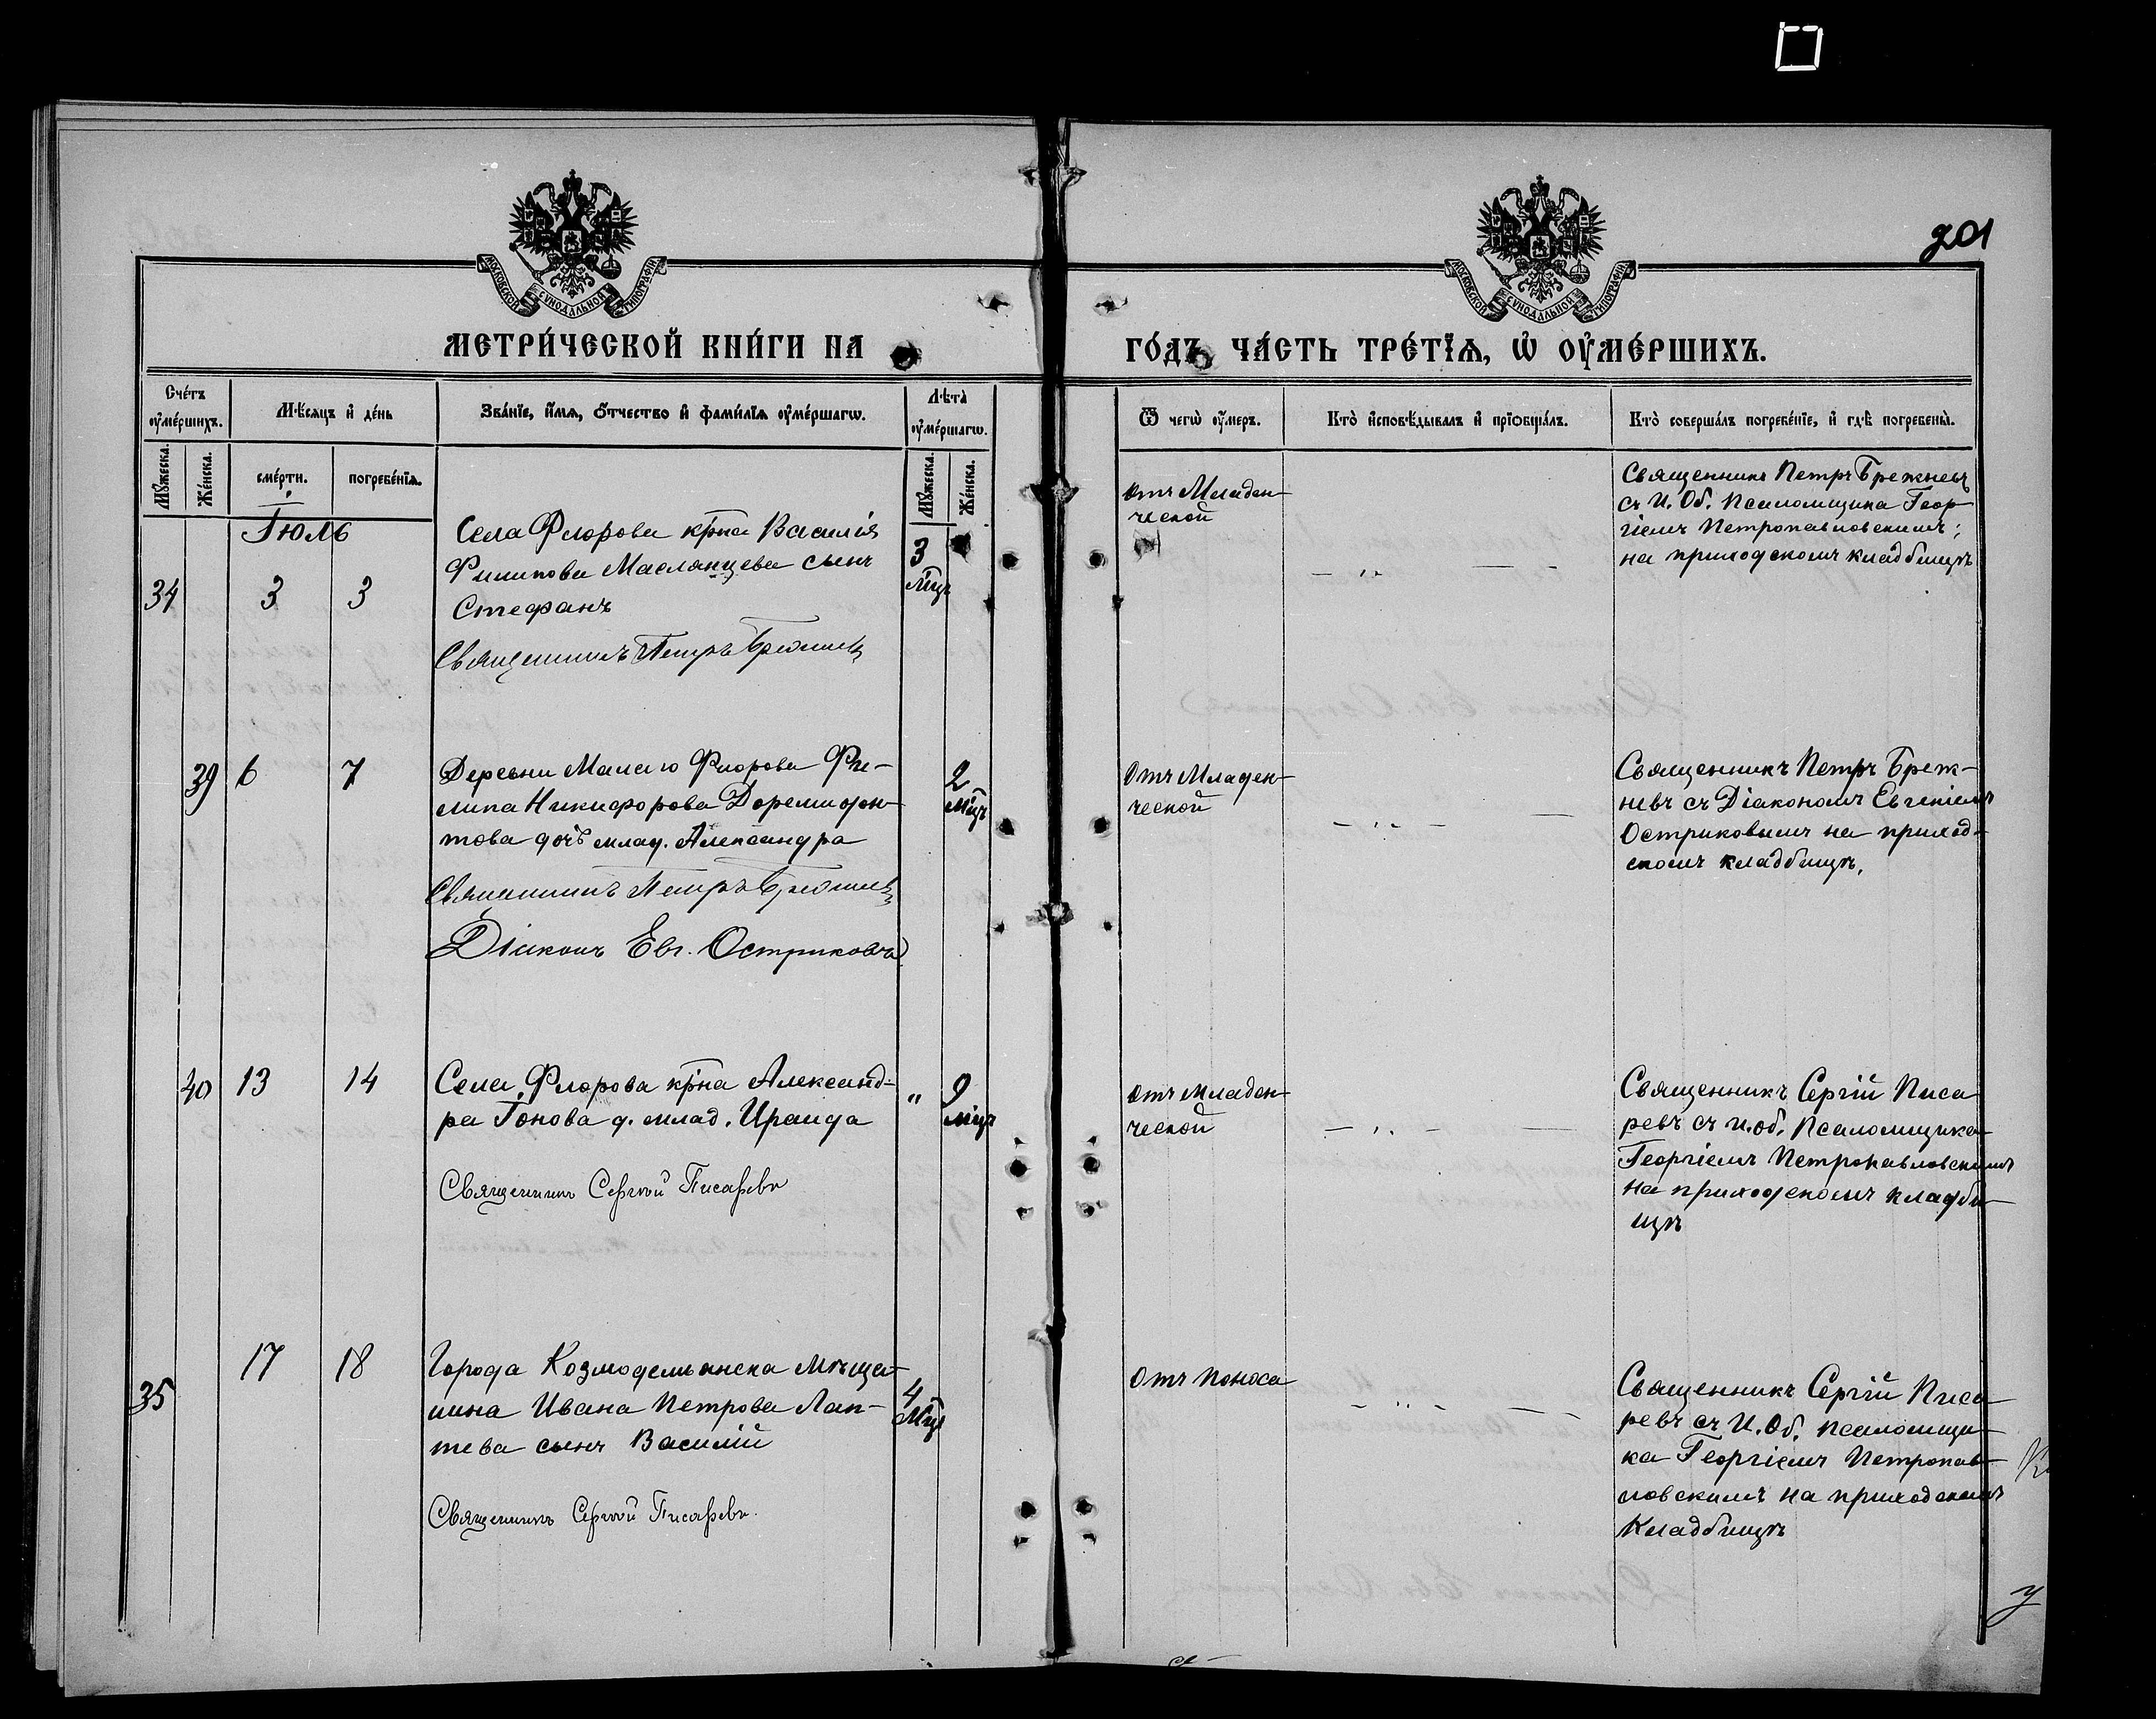 201
МОСКОВСКОЙ СѴНОДАЛЬНОЙ ТИПОГРАФІИ
МОСКОВСКОЙ СѴНОДАЛЬНОЙ ТИПОГРАФІИ
МЕТРИ́ЧЕСКОЙ КНИ́ГИ НА
ГО́ДЪ, ЧА́СТЬ ТРЕ́ТЇѦ, Ѡ҆ ОУ҆МЕ́РШИХЪ.
Сче́тъ оу҆ме́ршихъ.
Мѣ́сяцъ и҆ де́нь
Зва́нїе, и҆́мя, о҆́тчество и҆ фами́лїя оу҆ме́ршагѡ.
Лѣта̀ оу҆ме́ршагѡ.
Ѿ чегѡ̀ оу҆́меръ.
Кто̀ и҆сповѣ́дывалъ и҆ прїѻбща́лъ.
Кто̀ соверша́лъ погребе́нїе, и҆ гдѣ̀ погребены̀.
Мꙋ́жеска.
Же́нска.
сме́рти.
погребе́нїя.
Мꙋ́жеска.
Же́нска.
Іюль
34
3
3
Села Флорова кр̅на Василія
Филипова Маслянцева сынъ
Стефанъ
Священникъ Петръ Брежневъ
3
мц̅
отъ Младен-
ческой
Священникъ Петръ Брежневъ
съ И. Об. Псаломщика Геор-
гіемъ Петропавловскимъ;
на приходскомъ кладбищѣ
39
6
7
Деревни Малаго Флорова Фи-
липа Никифорова Доремидон-
това дочь млад. Александра
Священникъ Петръ Брежневъ
Діаконъ Евг. Остриковъ
2
мц̅
Отъ Младен-
ческой
Священникъ Петръ Бреж-
невъ съ Діакономъ Евгеніемъ
Остриковымъ на приход-
скомъ кладбищѣ.
40
13
14
Села Флорова кр̅на Александ-
ра Гонова д. млад. Ираида
Священникъ Сергій Писаревъ
"
9
мцъ
отъ младен-
ческой
Священникъ Сергій Писа
ревъ съ и.об. Псаломщика
Георгіемъ Петропавловскимъ
на приходскомъ кладби-
щѣ
35
17
18
Города Козмодемьянска мѣща-
нина Ивана Петрова Лап-
тева сынъ Василій
Священникъ Сергій Писаревъ.
4
мц̅
Отъ поноса
Священникъ Сергій Писа-
ревъ съ И. Об. псаломщи-
ка Георгіемъ Петропав-
ловскимъ на приходскомъ
кладбищѣ